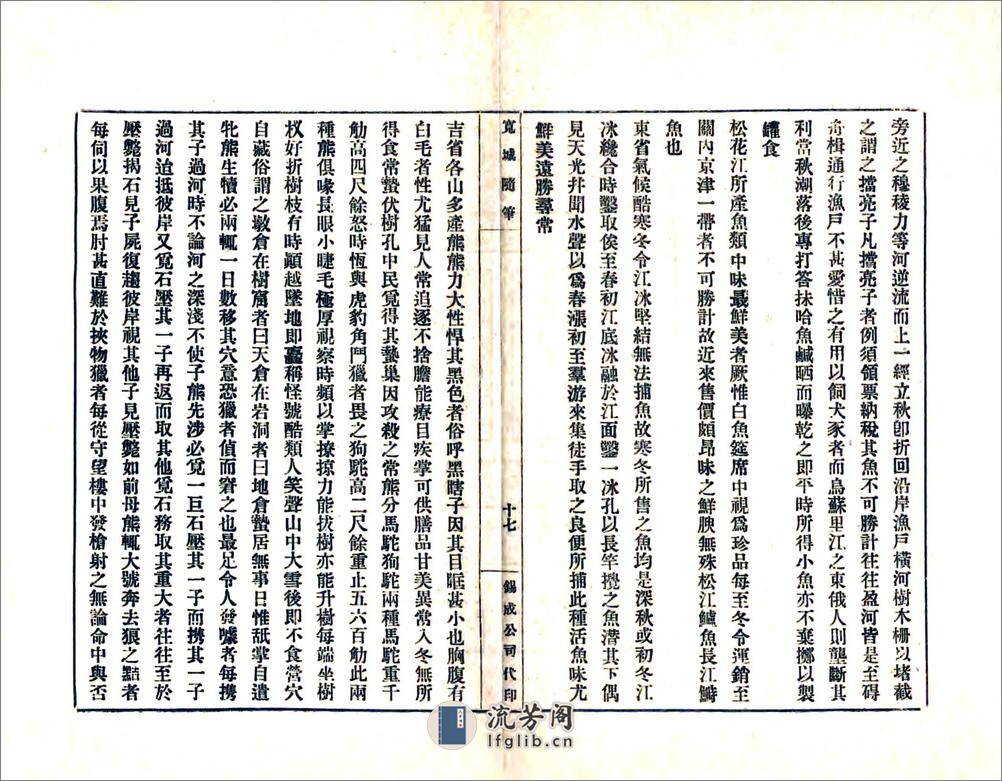 旁近之穆稜力等河逆流而上一經立秋卽折回沿岸漁戶橫河樹木柵以堵截
之謂之擋亮子凡擋亮子者例須領票納稅其魚不可勝計往往盈河皆是至碍
舟楫通行漁戶不甚愛惜之有用以飼犬豕者而烏蘇里江之東俄人則壟斷其
利當秋潮落後專打答抹哈魚鹹晒而曝乾之即平時所得小魚亦不棄擲以製
罐食
松花江所產魚類中味最鮮美者厥惟白魚筵席中視爲珍品每至冬令運銷至
關內京津一帶者不可勝計故近來售價頗昂味之鮮腴無殊松江鱸魚長江鰣
魚也
東省氣候酷寒冬令江冰堅結無法捕魚故寒冬所售之魚均是深秋或初冬江
冰纔合時鑿取俟至春初江底冰融於江面鑿一冰孔以長竿攪之魚潛其下偶
見天光幷聞水聲以爲春漲初至羣游來集徒手取之良便所捕此種活魚味尤
鮮美遠勝尋常
寬城隨筆
十七
錫成公司代印
吉省各山多產熊熊力大性悍其黑色者俗呼黑瞎子因其目眂甚小也胸腹有
白毛者性尤猛見人常追逐不捨膽能療目疾掌可供膳品甘美異常入冬無所
得食常蟄伏樹孔中民覓得其蟄巢因攻殺之常熊分馬駝狗駝兩種馬駝重千
觔高四尺餘怒時恆與虎豹角鬥獵者畏之狗駝高二尺餘重止五六百觔此兩
種熊俱喙長眼小睫毛極厚視察時頻以掌撩掠力能拔樹亦能升樹每端坐樹
杈好折樹枝有時顚越墜地即矗稱怪號酷類人笑聲山中大雪後即不食營穴
自藏俗謂之墩倉在樹窩者曰天倉在岩洞者曰地倉蟄居無事日惟舐掌自遣
牝熊生犢必兩輒一日數移其穴意恐獵者偵而窘之也最足令人發噱者每携
其子過河時不論河之深淺不使子熊先涉必覓一巨石壓其一子而携其一子
過河迨抵彼岸又覓石壓其一子再返而取其他覓石務取其重大者往往至於
壓斃揭石見子屍復趨彼岸視其他子見壓斃如前母熊輒大號奔去狼之黠者
每伺以果腹焉肘甚直難於挾物獵者每從守望樓中發槍射之無論命中與否
流芳阁
lfglib.cn